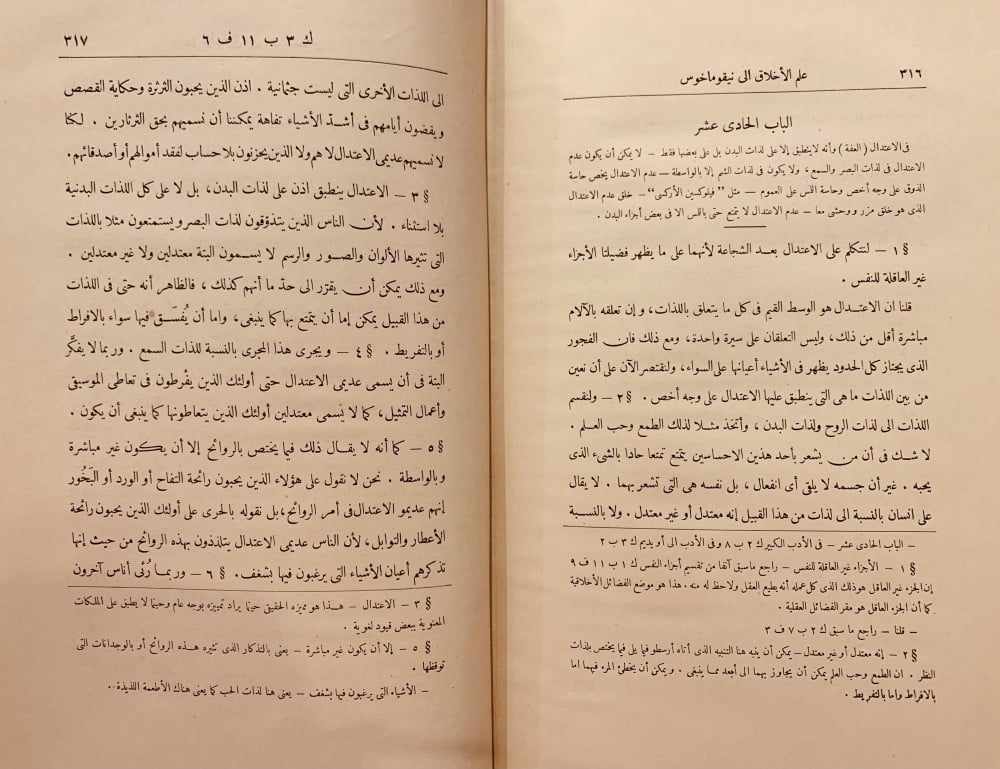 ٣١٦
علم الأخلاق الى نيقوماخوس
الباب الحادى عشر
فى الاعتدال (العفة) وأنه لا ينطبق إلا على لذات البدن بل على بعضها فقط – لا يمكن أن يكون عدم
الاعتدال فى لذات البصر والسمع، ولا يكون فى لذات الشم إلا بالواسطة – عدم الاعتدال يخص حاسة
الذوق على وجه أخص وحاسة اللمس على العموم – مثل "فيلوكسين الأركسى" – خلق عدم الاعتدال
الذى هو خلق مزر ووحشى معا – عدم الاعتدال لا يتمتع حتى باللمس الا فى بعض أجزاء البدن .
§ ١ – لنتكلم على الاعتدال بعد الشجاعة لأنهما على ما يظهر فضيلتا الأجزاء
غير العاقلة للنفس .
قلنا ان الاعتدال هو الوسط القيم فى كل ما يتعلق باللذات، وإن تعلقه بالآلام
مباشرة أقل من ذلك، وليس التعلقان على سيرة واحدة، ومع ذلك فان الفجور
الذى يجتاز كل الحدود يظهر فى الأشياء أعيانها على السواء، ولنقتصر الآن على أن نعين
من بين اللذات ما هى التى ينطبق عليها الاعتدال على وجه أخص . § ٢ – ولنقسم
اللذات الى لذات الروح ولذات البدن ، وأتخذ مثلا لذلك الطمع وحب العلم .
لا شك فى أن من يشعر بأحد هذين الاحساسين يتمتع تمتعا حادا بالشىء الذى
يحبه . غير أن جسمه لا يلقى أى انفعال ، بل نفسه هى التى تشعر بهما . لا يقال
على انسان بالنسبة الى لذات من هذا القبيل إنه معتدل أو غير معتدل . ولا بالنسبة
– الباب الحادى عشر – فى الأدب الكبير ك ٢ ب ٨ وفى الأدب الى أويديم ك ٣ ب ٢
§ ١ – الأجزاء غير العاقلة للنفس – راجع ماسبق آنفا من تقسيم أجزاء النفس ك ١ ب ١١ ف ٩
إن الجزء غير العاقل هو ذلك الذى كل عمله أنه يطيع العقل ولا حظ له منه . هذا هو موضع الفضائل الأخلاقية
كما أن الجزء العاقل هو مقر الفضائل العقلية .
– قلنا – راجع ما سبق ك ٢ ب ٧ ف ٣
§ ٢ – إنه معتدل أو غير معتدل – يمكن أن ينبه هنا التنبيه الذى أتاه أرسطو فيما يلى فيما يختص بلذات
النظر . ان الطمع وحب العلم يمكن أن يجاوز بهما الى أبعد مما ينبغى . ويمكن أن يخطئ المرء فيهما اما
بالافراط واما بالتفريط .
ك ٣ ب ١١ ف ٦
٣١٧
الى اللذات الأخرى التى ليست جثمانية . اذن الذين يحبون الثرثرة وحكاية القصص
ويقضون أيامهم فى أشدّ الأشياء تفاهة يمكننا أن نسميهم بحق الثرثارين . لكنا
لا نسميهم عديمى الاعتدال لا هم ولا الذين يحزنون بلا حساب لفقد أموالهم أو أصدقائهم.
§ ٣ – الاعتدال ينطبق اذن على لذات البدن، بل لا على كل اللذات البدنية
بلا استثناء . لأن الناس الذين يتذوّقون لذات البصر ويستمتعون مثلا باللذات
التى تثيرها الألوان والصور والرسم لا يسمون البتة معتدلين ولا غير معتدلين .
ومع ذلك يمكن أن يقرّر الى حدّ ما أنهم كذلك ، فالظاهر أنه حتى فى اللذات
من هذا القبيل يمكن إما أن يتمتع بها كما ينبغى، واما أن يُفسَّق فيها سواء بالافراط
أو بالتفريط . § ٤ – ويجرى هذا المجرى بالنسبة للذات السمع . وربما لا يفكَّر
البتة فى أن يسمى عديمى الاعتدال حتى أولئك الذين يفْرطون فى تعاطى الموسيقى
وأعمال التمثيل، كما لا يُسمى معتدلين أولئك الذين يتعاطونها كما ينبغى أن يكون .
§ ٥ – كما أنه لا يقال ذلك فيما يختص بالروائح إلا أن يكون غير مباشرة
وبالواسطة . نحن لا نقول على هؤلاء الذين يحبون رائحة التفاح أو الورد أو البَخُور
إنهم عديمو الاعتدال فى أمر الروائح، بل نقوله بالحرى على أولئك الذين يحبون رائحة
الأعطار والتوابل، لأن الناس عديمى الاعتدال يتلذذون بهذه الروائح من حيث إنها
تذكرهم أعيان الأشياء التى يرغبون فيها بشغف. § ٦ – وربما رُئى أناس آخرون
§ ٣ – الاعتدال – هذا هو مميزه الحقيق حينما يراد تمييزه بوجه عام وحينما لا يطبق على الملكات
المعنوية ببعض قيود لغوية .
§ ٥ – إلا أن يكون غير مباشرة – يعنى بالتذكار الذى تثيره هذه الروائح أو بالوجدانات التى
توقظها .
– الأشياء التى يرغبون فيها بشغف – يعنى هنا لذات الحب كما يعنى هناك الأطعمة اللذيذة..